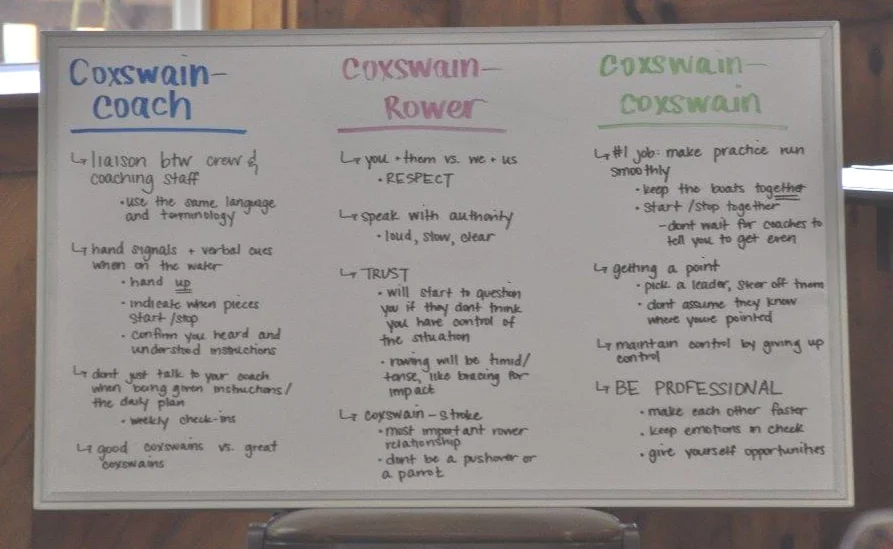 Coxswain-
Coach
↳ liaison btw crew &
coaching staff
• use the same language
and terminology
↳ hand signals + verbal cues
when on the water
• hand up
• indicate when pieces
start/stop
• confirm you heard and
understood instructions
↳ dont just talk to your coach
when being given instructions/
the daily plan
• weekly check-ins
↳ good coxswains vs. great
coxswains
Coxswain-
Rower
↳ you + them vs. we + us
• RESPECT
↳ speak with authority
• loud, slow, clear
↳ TRUST
• will start to question
you if they dont think
you have control of
the situation
• rowing will be timid/
tense, like bracing for
impact
↳ coxswain-stroke
• most important rower
relationship
• dont be a pushover or
a parrot
Coxswain-
coxswain
↳ #1 job: make practice run
smoothly
• keep the boats together
• Start/stop together
- dont wait for coaches to
tell you to get even
↳ getting a point
• pick a leader, steer off them
• dont assume they know
where youre pointed
↳ maintain control by giving up
control
↳ BE PROFESSIONAL
• make each other faster
• keep emotions in check
• give yourself opportunities